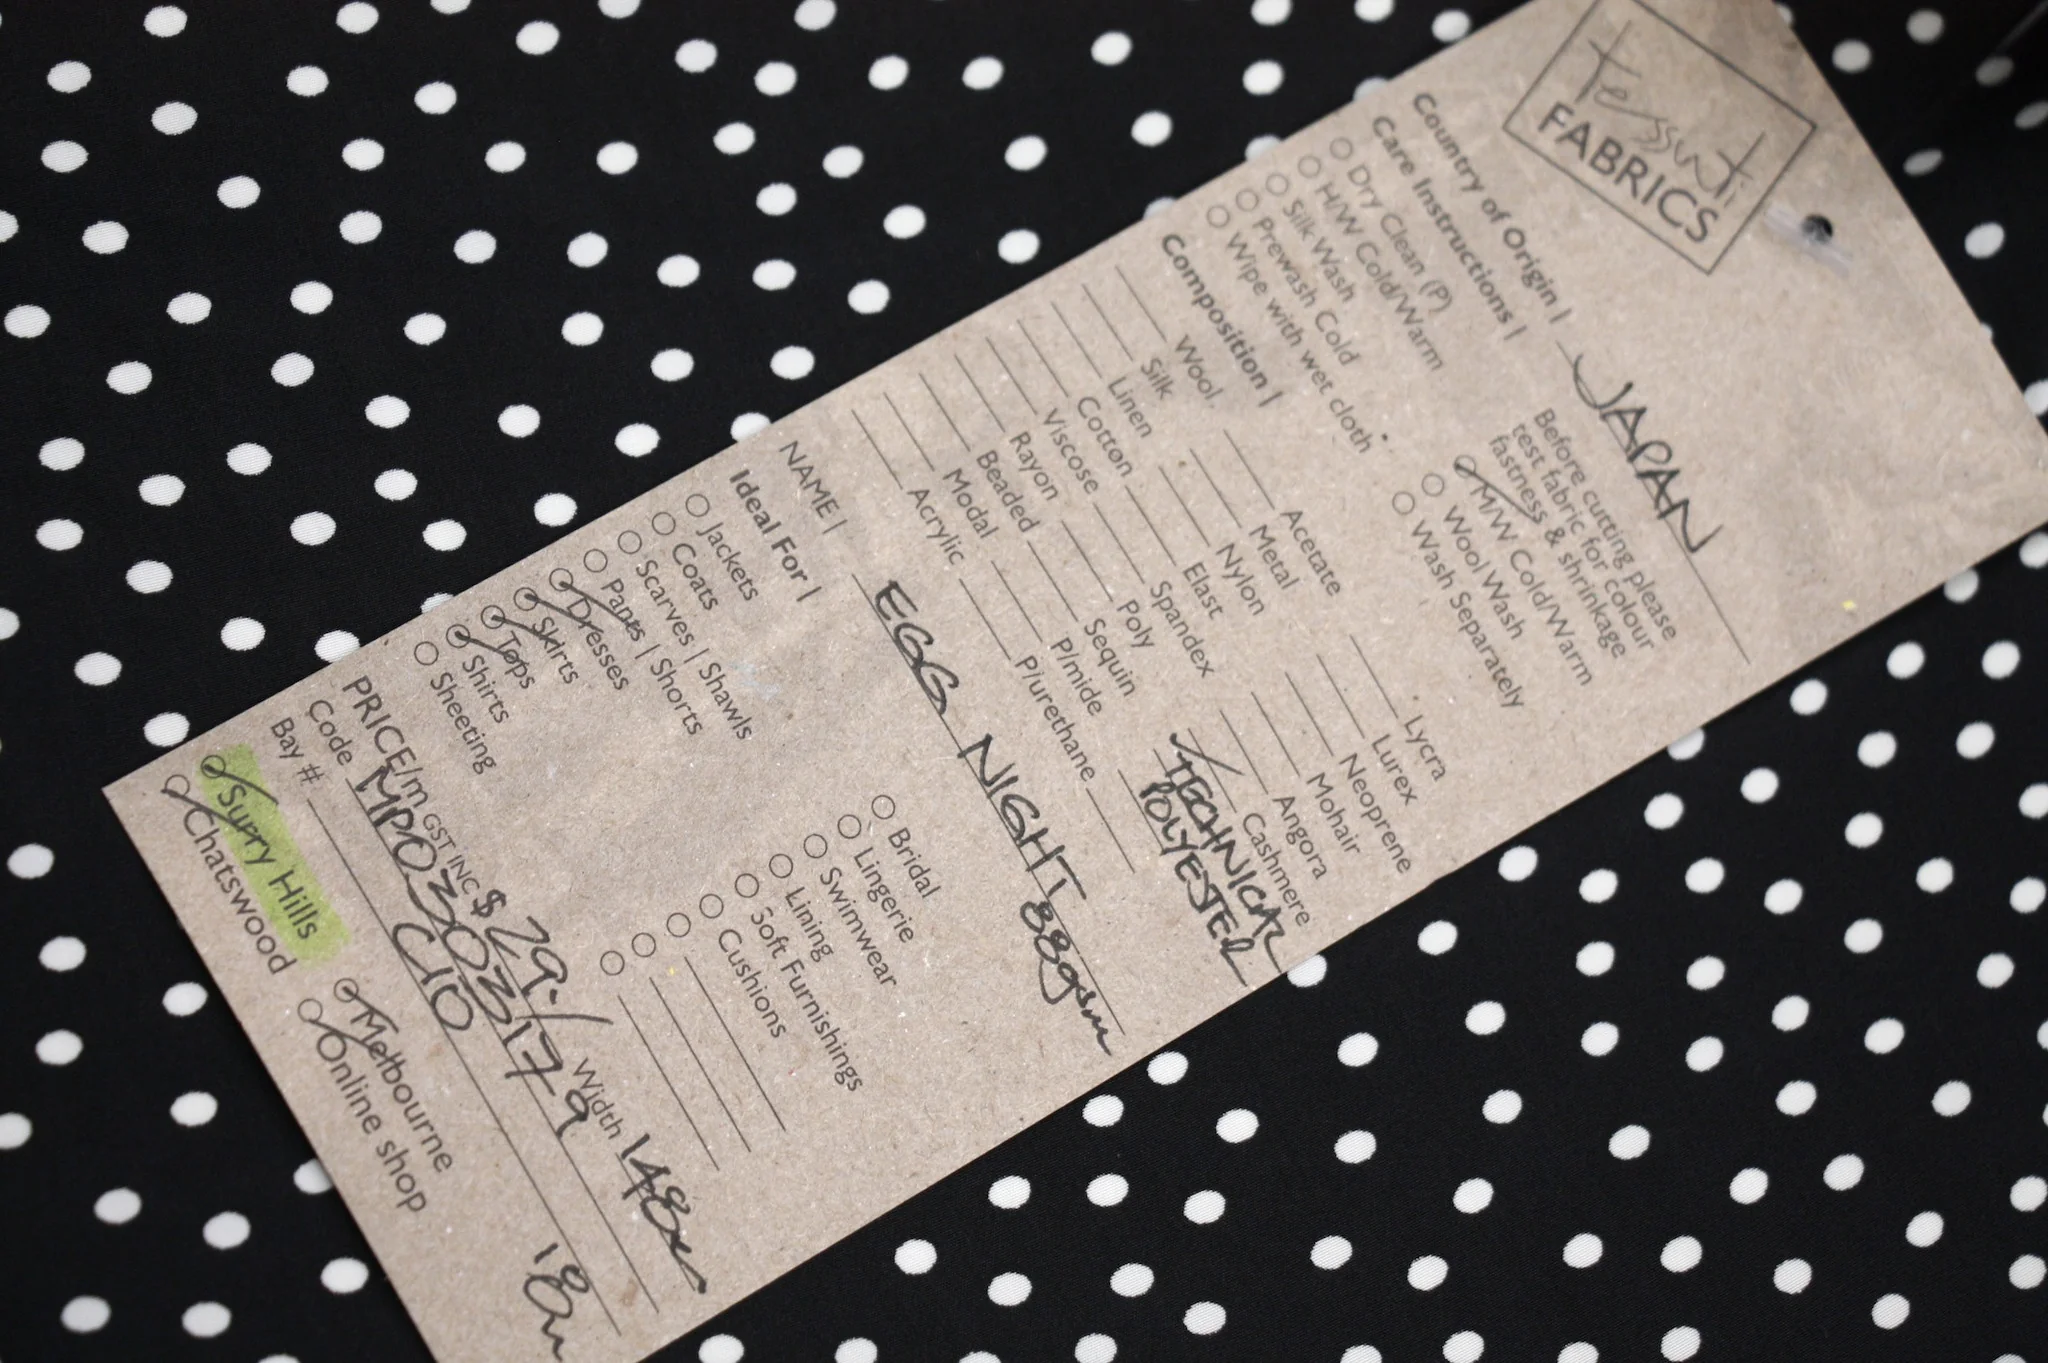 tessuti
FABRICS
Country of Origin | JAPAN
Care Instructions |
Before cutting please
test fabric for colour
fastness & shrinkage
Dry Clean (P)
H/W Cold/Warm
Silk Wash
Prewash Cold
Wipe with wet cloth
M/W Cold/Warm
Wool Wash
Wash Separately
Composition |
Wool
Silk
Linen
Cotton
Viscose
Rayon
Beaded
Modal
Acrylic
Acetate
Metal
Nylon
Elast
Spandex
Poly
Sequin
P/mide
P/urethane
Lycra
Lurex
Neoprene
Mohair
Angora
Cashmere
TECHNICAL
POLYESTER
NAME | EGG NIGHT 88gsm
Ideal For |
Jackets
Coats
Scarves | Shawls
Pants | Shorts
Dresses
Skirts
Tops
Shirts
Sheeting
Bridal
Lingerie
Swimwear
Lining
Soft Furnishings
Cushions
PRICE/m GST INC $ 29./ Width 148cm
Code MP0303179
Bay # C10 18m
Surry Hills
Chatswood
Melbourne
Online shop